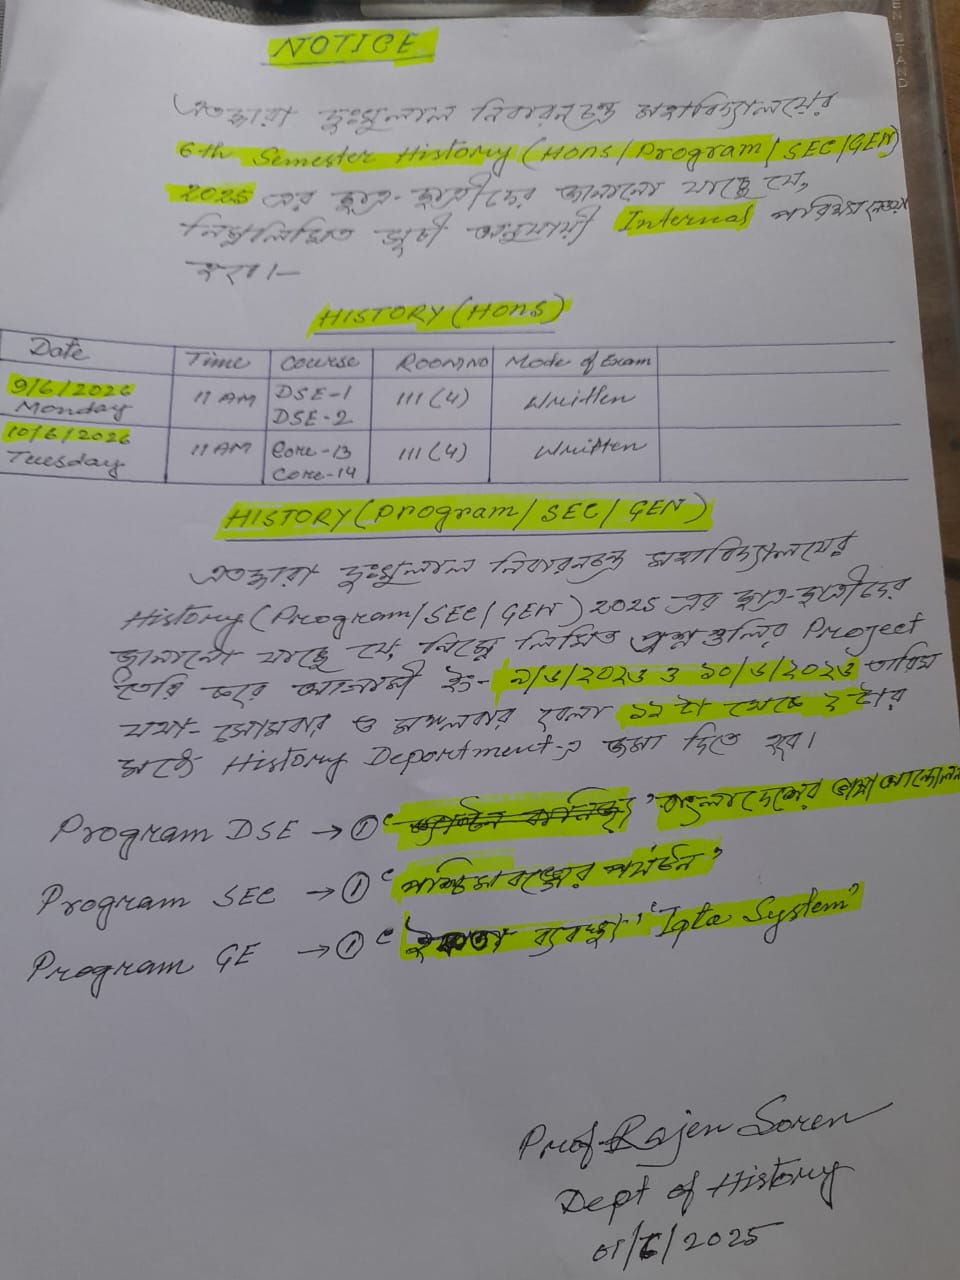 NOTICE
এতদ্বারা দুঃখুলাল নিবারনচন্দ্র মহাবিদ্যালয়ের
6th Semester History (Hons/Program/SEC/GEN)
2025 এর ছাত্র-ছাত্রীদের জানানো যাচ্ছে যে,
নিম্নলিখিত সূচী অনুযায়ী Internal পরিক্ষা নেওয়া
হবে।—
HISTORY (HONS)
Date Time Course ROOM NO Mode of Exam
9/6/2026 Monday 11 AM DSE-1 DSE-2 111(4) Written
10/6/2026 Tuesday 11 AM Core-13 Core-14 111(4) Written
HISTORY (Program/SEC/GEN)
এতদ্বারা দুঃখুলাল নিবারনচন্দ্র মহাবিদ্যালয়ের
History (Program/SEC/GEN) 2025 এর ছাত্র-ছাত্রীদের
জানানো যাচ্ছে যে, নিম্নে লিখিত প্রশ্নগুলির Project
তৈরি করে আগামী ইং- ৯/৬/২০২৬ ও ১০/৬/২০২৬ তারিখ
যথা- সোমবার ও মঙ্গলবার বেলা ১১ টা থেকে ২ টার
মধ্যে History Department-এ জমা দিতে হবে।
Program DSE → ① ‘ বাংলাদেশের ভাষা আন্দোলন
Program SEC → ① ‘পশ্চিমবঙ্গের পর্যটন’
Program GE → ① ‘ ব্যবস্থা’ ‘Iqta System’
Prof. Rajen Soren
Dept of History
01/6/2025